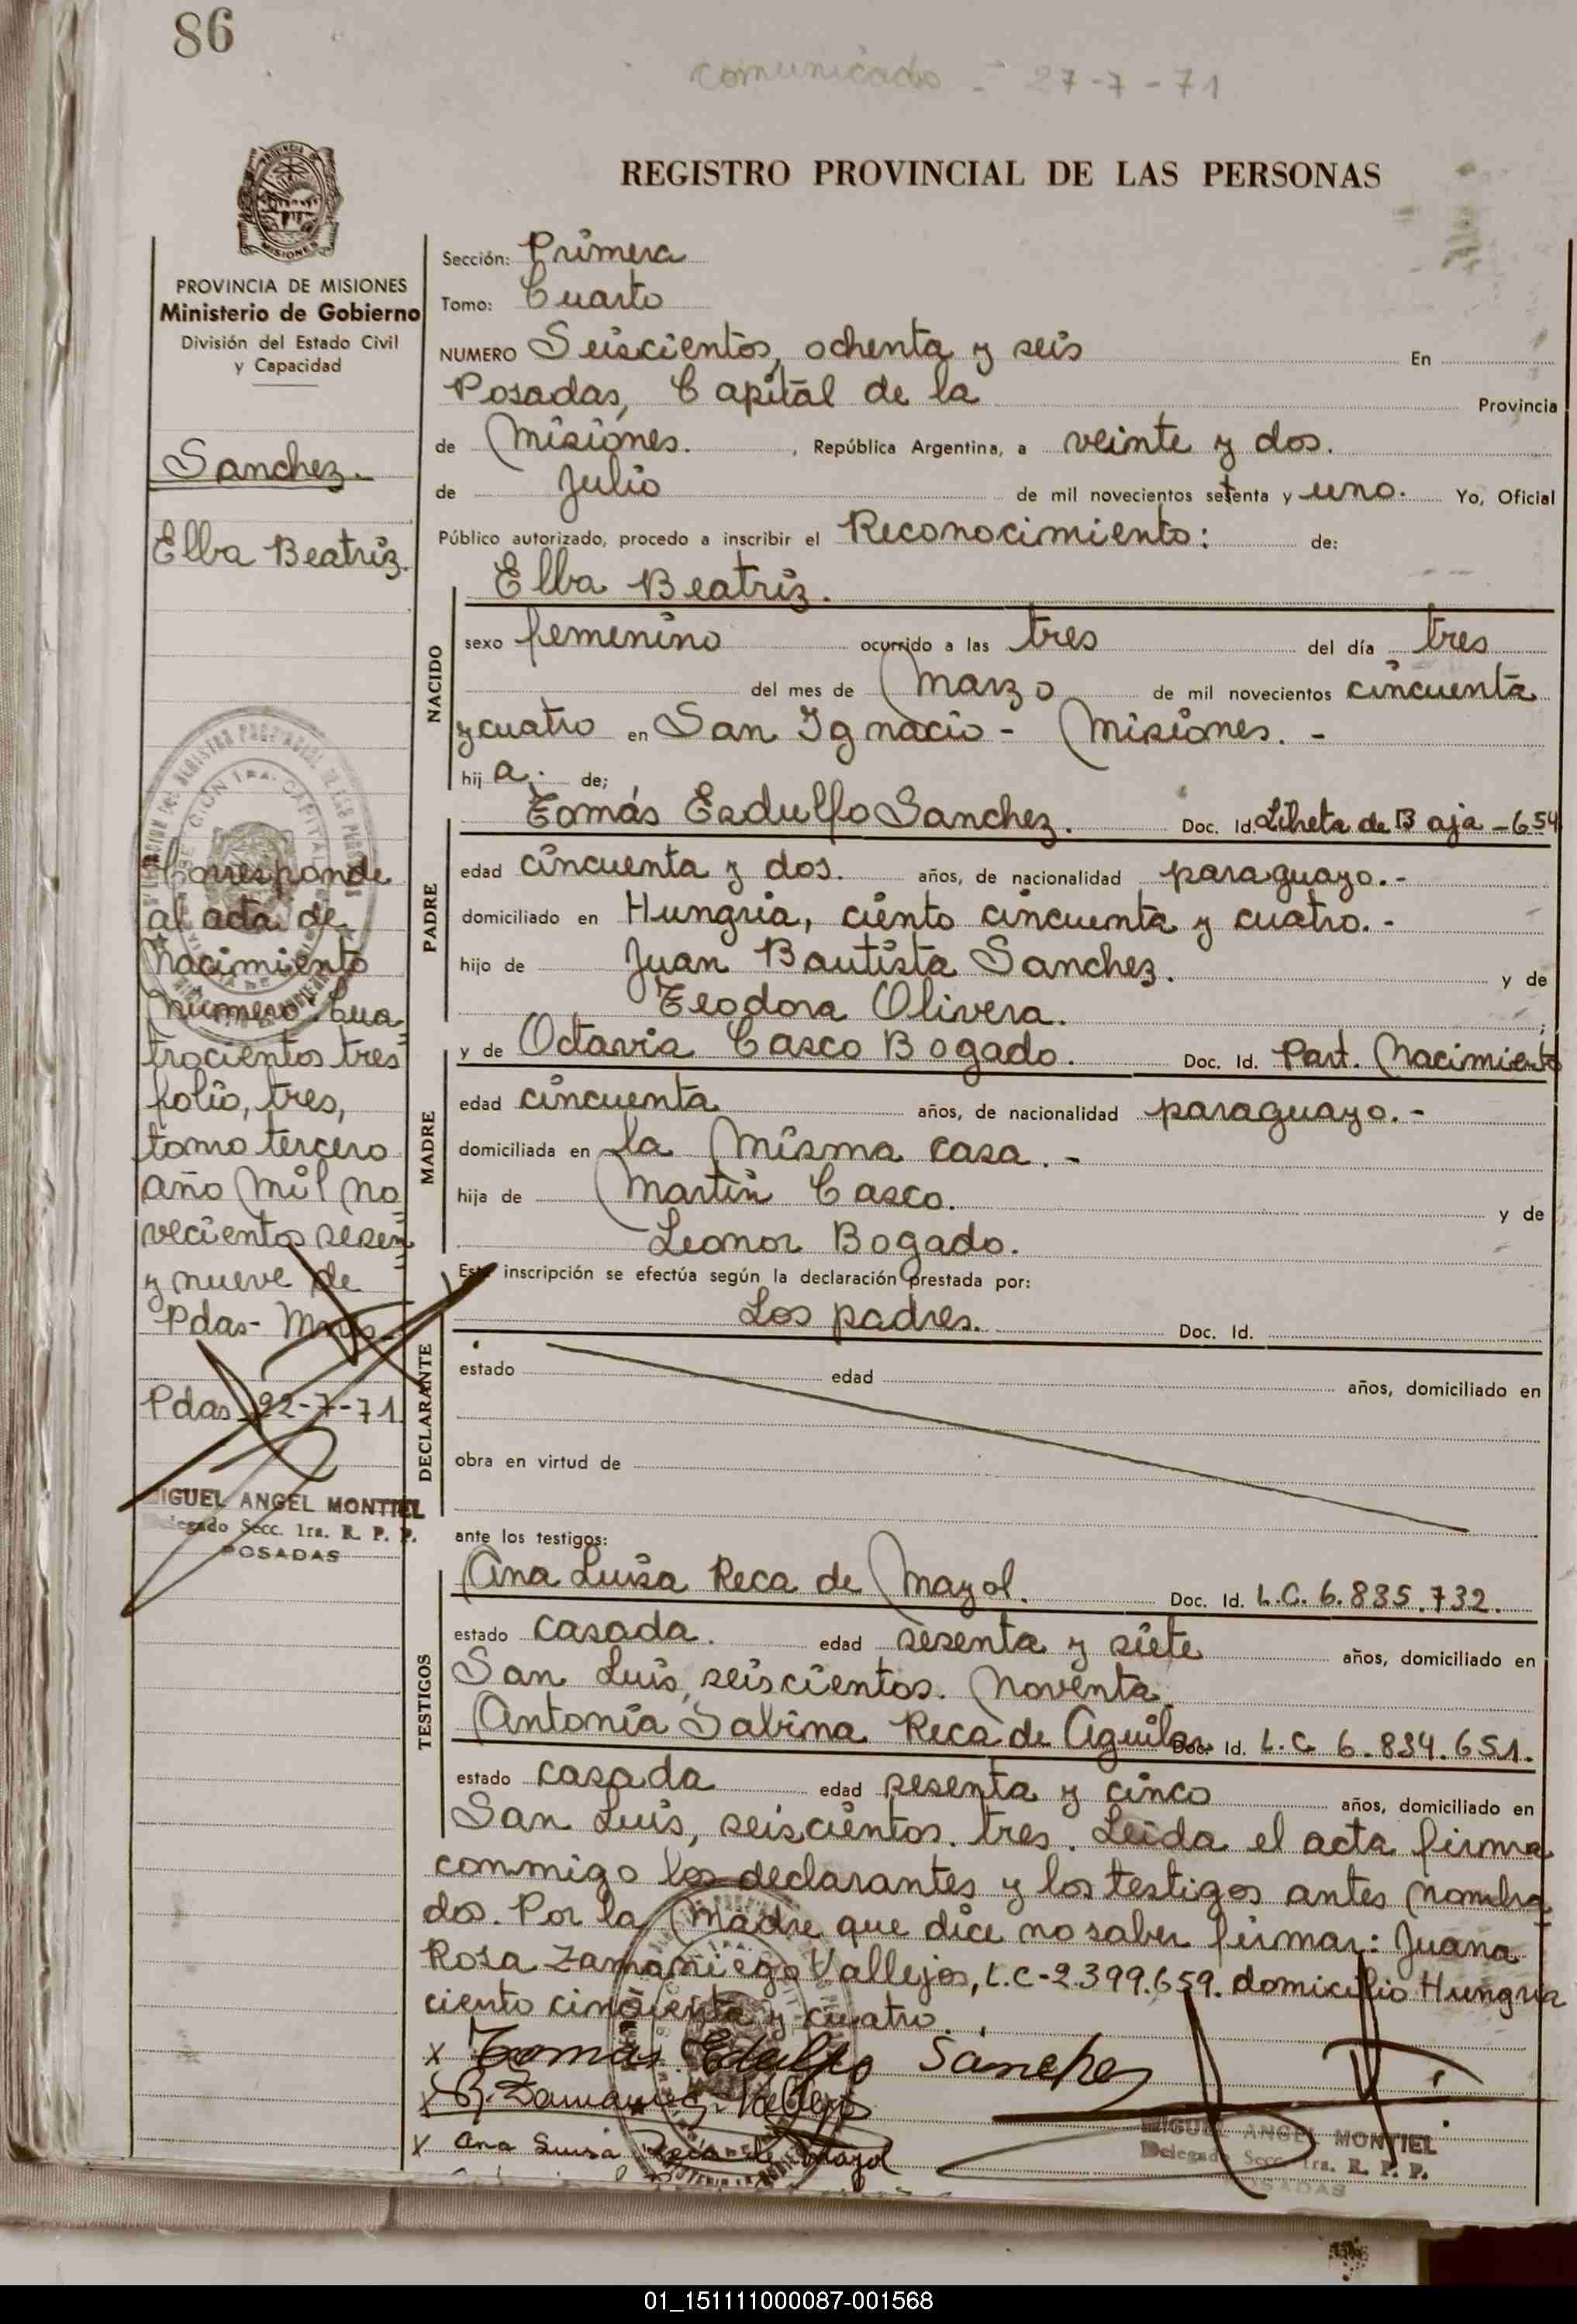 86
comunicado - 27-7-71
REGISTRO PROVINCIAL DE LAS PERSONAS
PROVINCIA DE MISIONES
Ministerio de Gobierno
División del Estado Civil
y Capacidad
Sanchez.
Elba Beatriz.
Corresponde
al acta de
Nacimiento
número Cua
trocientos tres
folio, tres,
tomo tercero
año mil no
vecientos sesen
y nueve de
Pdas- Mnes-
Pdas 22-7-71
MIGUEL ANGEL MONTIEL
Delegado Secc. 1ra. R. P. P.
POSADAS
Sección: Primera
Tomo: Cuarto
NUMERO Seiscientos, ochenta y seis En
Posadas, Capital de la Provincia
de Misiones. , República Argentina, a veinte y dos.
de Julio de mil novecientos setenta y uno. Yo, Oficial
Público autorizado, procedo a inscribir el Reconocimiento: de:
NACIDO
Elba Beatriz.
sexo femenino ocurrido a las tres del día tres
del mes de Marzo de mil novecientos cincuenta
y cuatro en San Ignacio - Misiones. -
hij a. de;
PADRE
Tomás Esdulfo Sanchez. Doc. Id. Libreta de Baja - 654
edad cincuenta y dos. años, de nacionalidad paraguayo. -
domiciliado en Hungria, ciento cincuenta y cuatro. -
hijo de Juan Bautista Sanchez. y de
Teodora Olivera. ;
MADRE
y de Octavia Casco Bogado. Doc. Id. Part. Nacimiento
edad cincuenta años, de nacionalidad paraguayo. -
domiciliada en la misma casa. -
hija de Martín Casco. y de
Leonor Bogado.
Esta inscripción se efectúa según la declaración prestada por:
DECLARANTE
Los padres. Doc. Id.
estado edad años, domiciliado en
obra en virtud de
ante los testigos:
TESTIGOS
Ana Luisa Reca de Mayol. Doc. Id. L.C. 6.835.732.
estado casada. edad sesenta y siete años, domiciliado en
San Luis, seiscientos. Noventa.
Antonia Sabina Reca de Aguilar Doc. Id. L.C. 6.834.651.
estado casada edad sesenta y cinco años, domiciliado en
San Luis, seiscientos. tres. Leida el acta firma
conmigo los declarantes y los testigos antes nombra
dos. Por la Madre que dice no saber firmar: Juana
Rosa Zamaniego Vallejos, L.C-2.399.659. domicilio Hungria
ciento cincuenta y cuatro.
x Tomás Edulfo Sánchez
x
x Ana Luisa Reca de Mayol
MIGUEL ANGEL MONTIEL
Delegado Secc. 1ra. R. P. P.
POSADAS
01_151111000087-001568